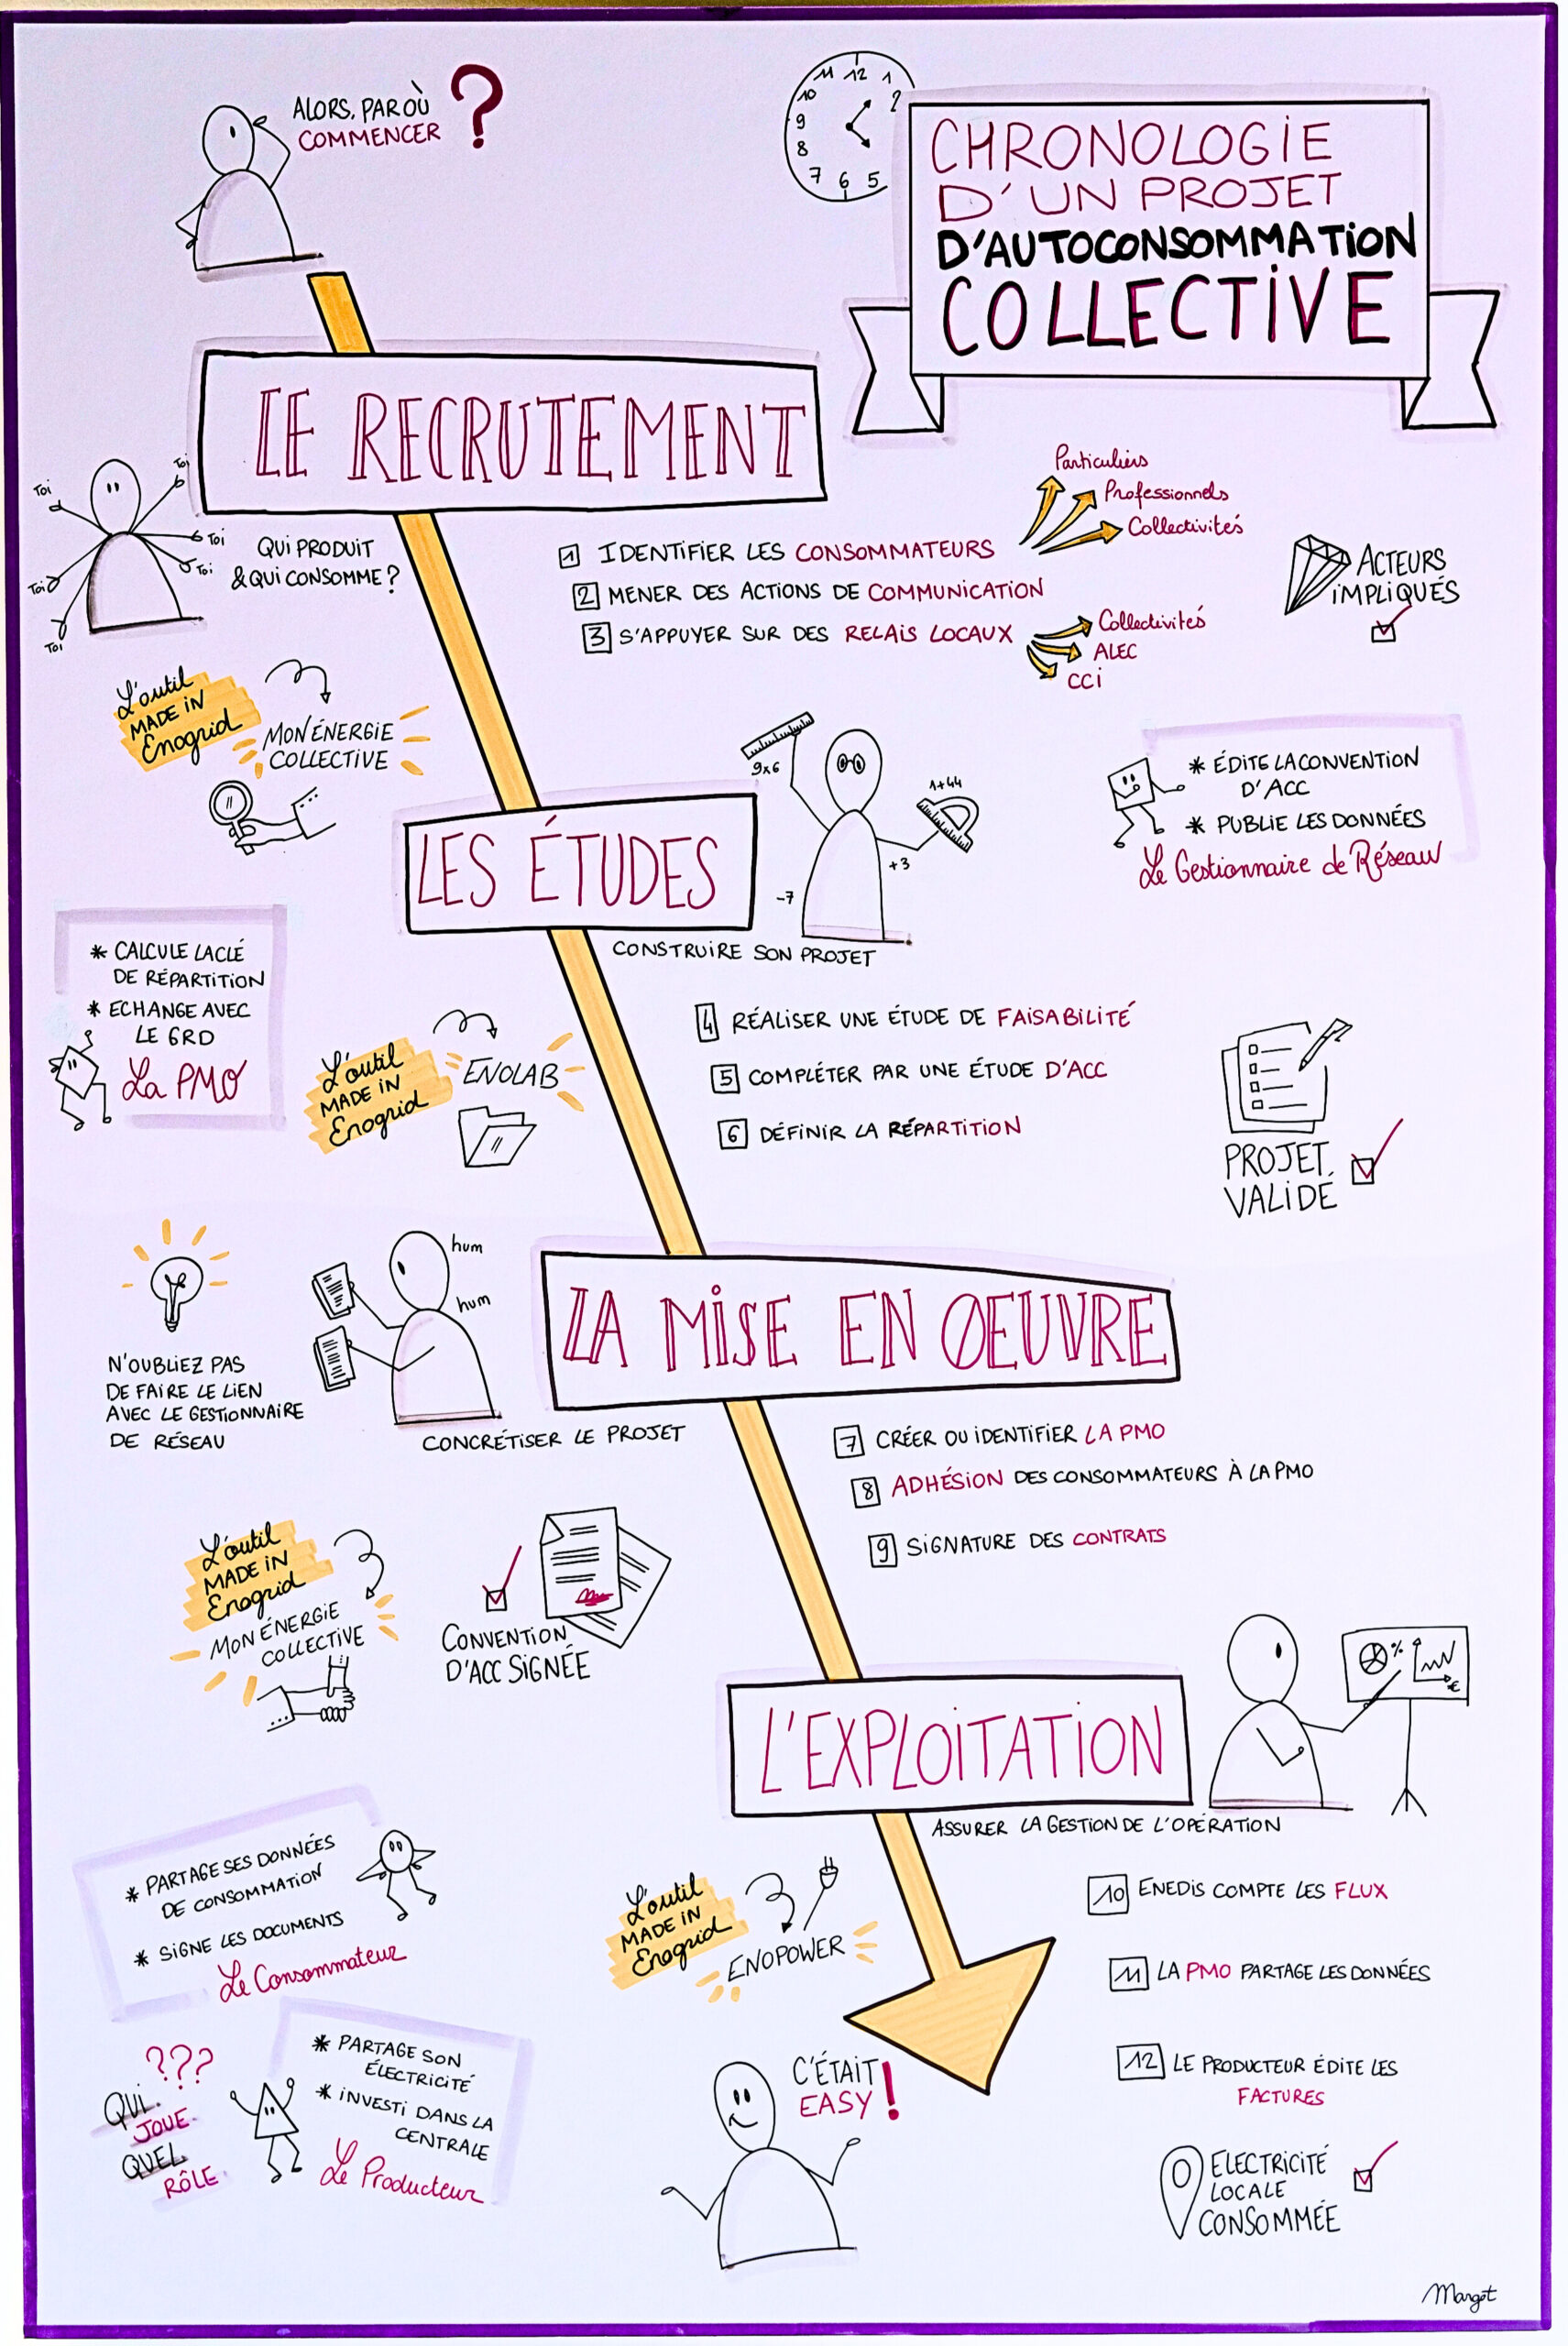 ALORS, PAR OÙ
COMMENCER ?
11 12 1
10 2
9
8
7 6 5
CHRONOLOGIE
D'UN PROJET
D'AUTOCONSOMMATION
COLLECTIVE
LE RECRUTEMENT
Toi
Toi
Toi
Toi
Toi
Toi
QUI PRODUIT
& QUI CONSOMME ?
1 IDENTIFIER LES CONSOMMATEURS
Particuliers
Professionnels
Collectivités
2 MENER DES ACTIONS DE COMMUNICATION
3 S'APPUYER SUR DES RELAIS LOCAUX
Collectivités
ALEC
CCI
ACTEURS
IMPLIQUÉS
L'outil
MADE IN
Enogrid
MON ÉNERGIE
COLLECTIVE
LES ÉTUDES
9x6
1+44
+3
-7
CONSTRUIRE SON PROJET
* ÉDITE LA CONVENTION
D'ACC
* PUBLIE LES DONNÉES
Le Gestionnaire de Réseau
* CALCULE LA CLÉ
DE RÉPARTITION
* ECHANGE AVEC
LE GRD
La PMO
L'outil
MADE IN
Enogrid
ENOLAB
4 RÉALISER UNE ÉTUDE DE FAISABILITÉ
5 COMPLÉTER PAR UNE ÉTUDE D'ACC
6 DÉFINIR LA RÉPARTITION
PROJET
VALIDE
N'OUBLIEZ PAS
DE FAIRE LE LIEN
AVEC LE GESTIONNAIRE
DE RÉSEAU
hum
hum
LA MISE EN OEUVRE
CONCRÉTISER LE PROJET
7 CRÉER OU IDENTIFIER LA PMO
8 ADHÉSION DES CONSOMMATEURS À LA PMO
9 SIGNATURE DES CONTRATS
L'outil
MADE IN
Enogrid
MON ÉNERGIE
COLLECTIVE
CONVENTION
D'ACC SIGNÉE
L'EXPLOITATION
%
€
ASSURER LA GESTION DE L'OPÉRATION
* PARTAGE SES DONNÉES
DE CONSOMMATION
* SIGNE LES DOCUMENTS
Le Consommateur
L'outil
MADE IN
Enogrid
ENOPOWER
10 ENEDIS COMPTE LES FLUX
11 LA PMO PARTAGE LES DONNÉES
12 LE PRODUCTEUR ÉDITE LES
FACTURES
???
QUI
JOUE
QUEL
RÔLE
* PARTAGE SON
ÉLECTRICITÉ
* INVESTI DANS LA
CENTRALE
Le Producteur
C'ÉTAIT
EASY !
ELECTRICITÉ
LOCALE
CONSOMMÉE
Margot